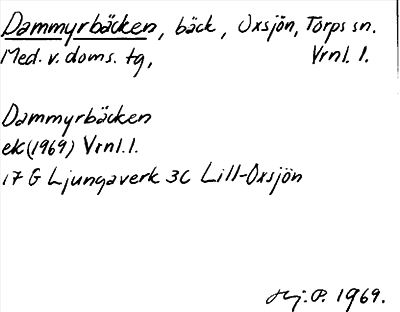 Dammyrbäcken, bäck, Oxsjön, Torps sn.
Med. v. doms. tg, Vrnl. l.
Dammyrbäcken
ek (1969) Vrnl. l.
17 G Ljungaverk 3c Lill-Oxsjön
Hj. P. 1969.